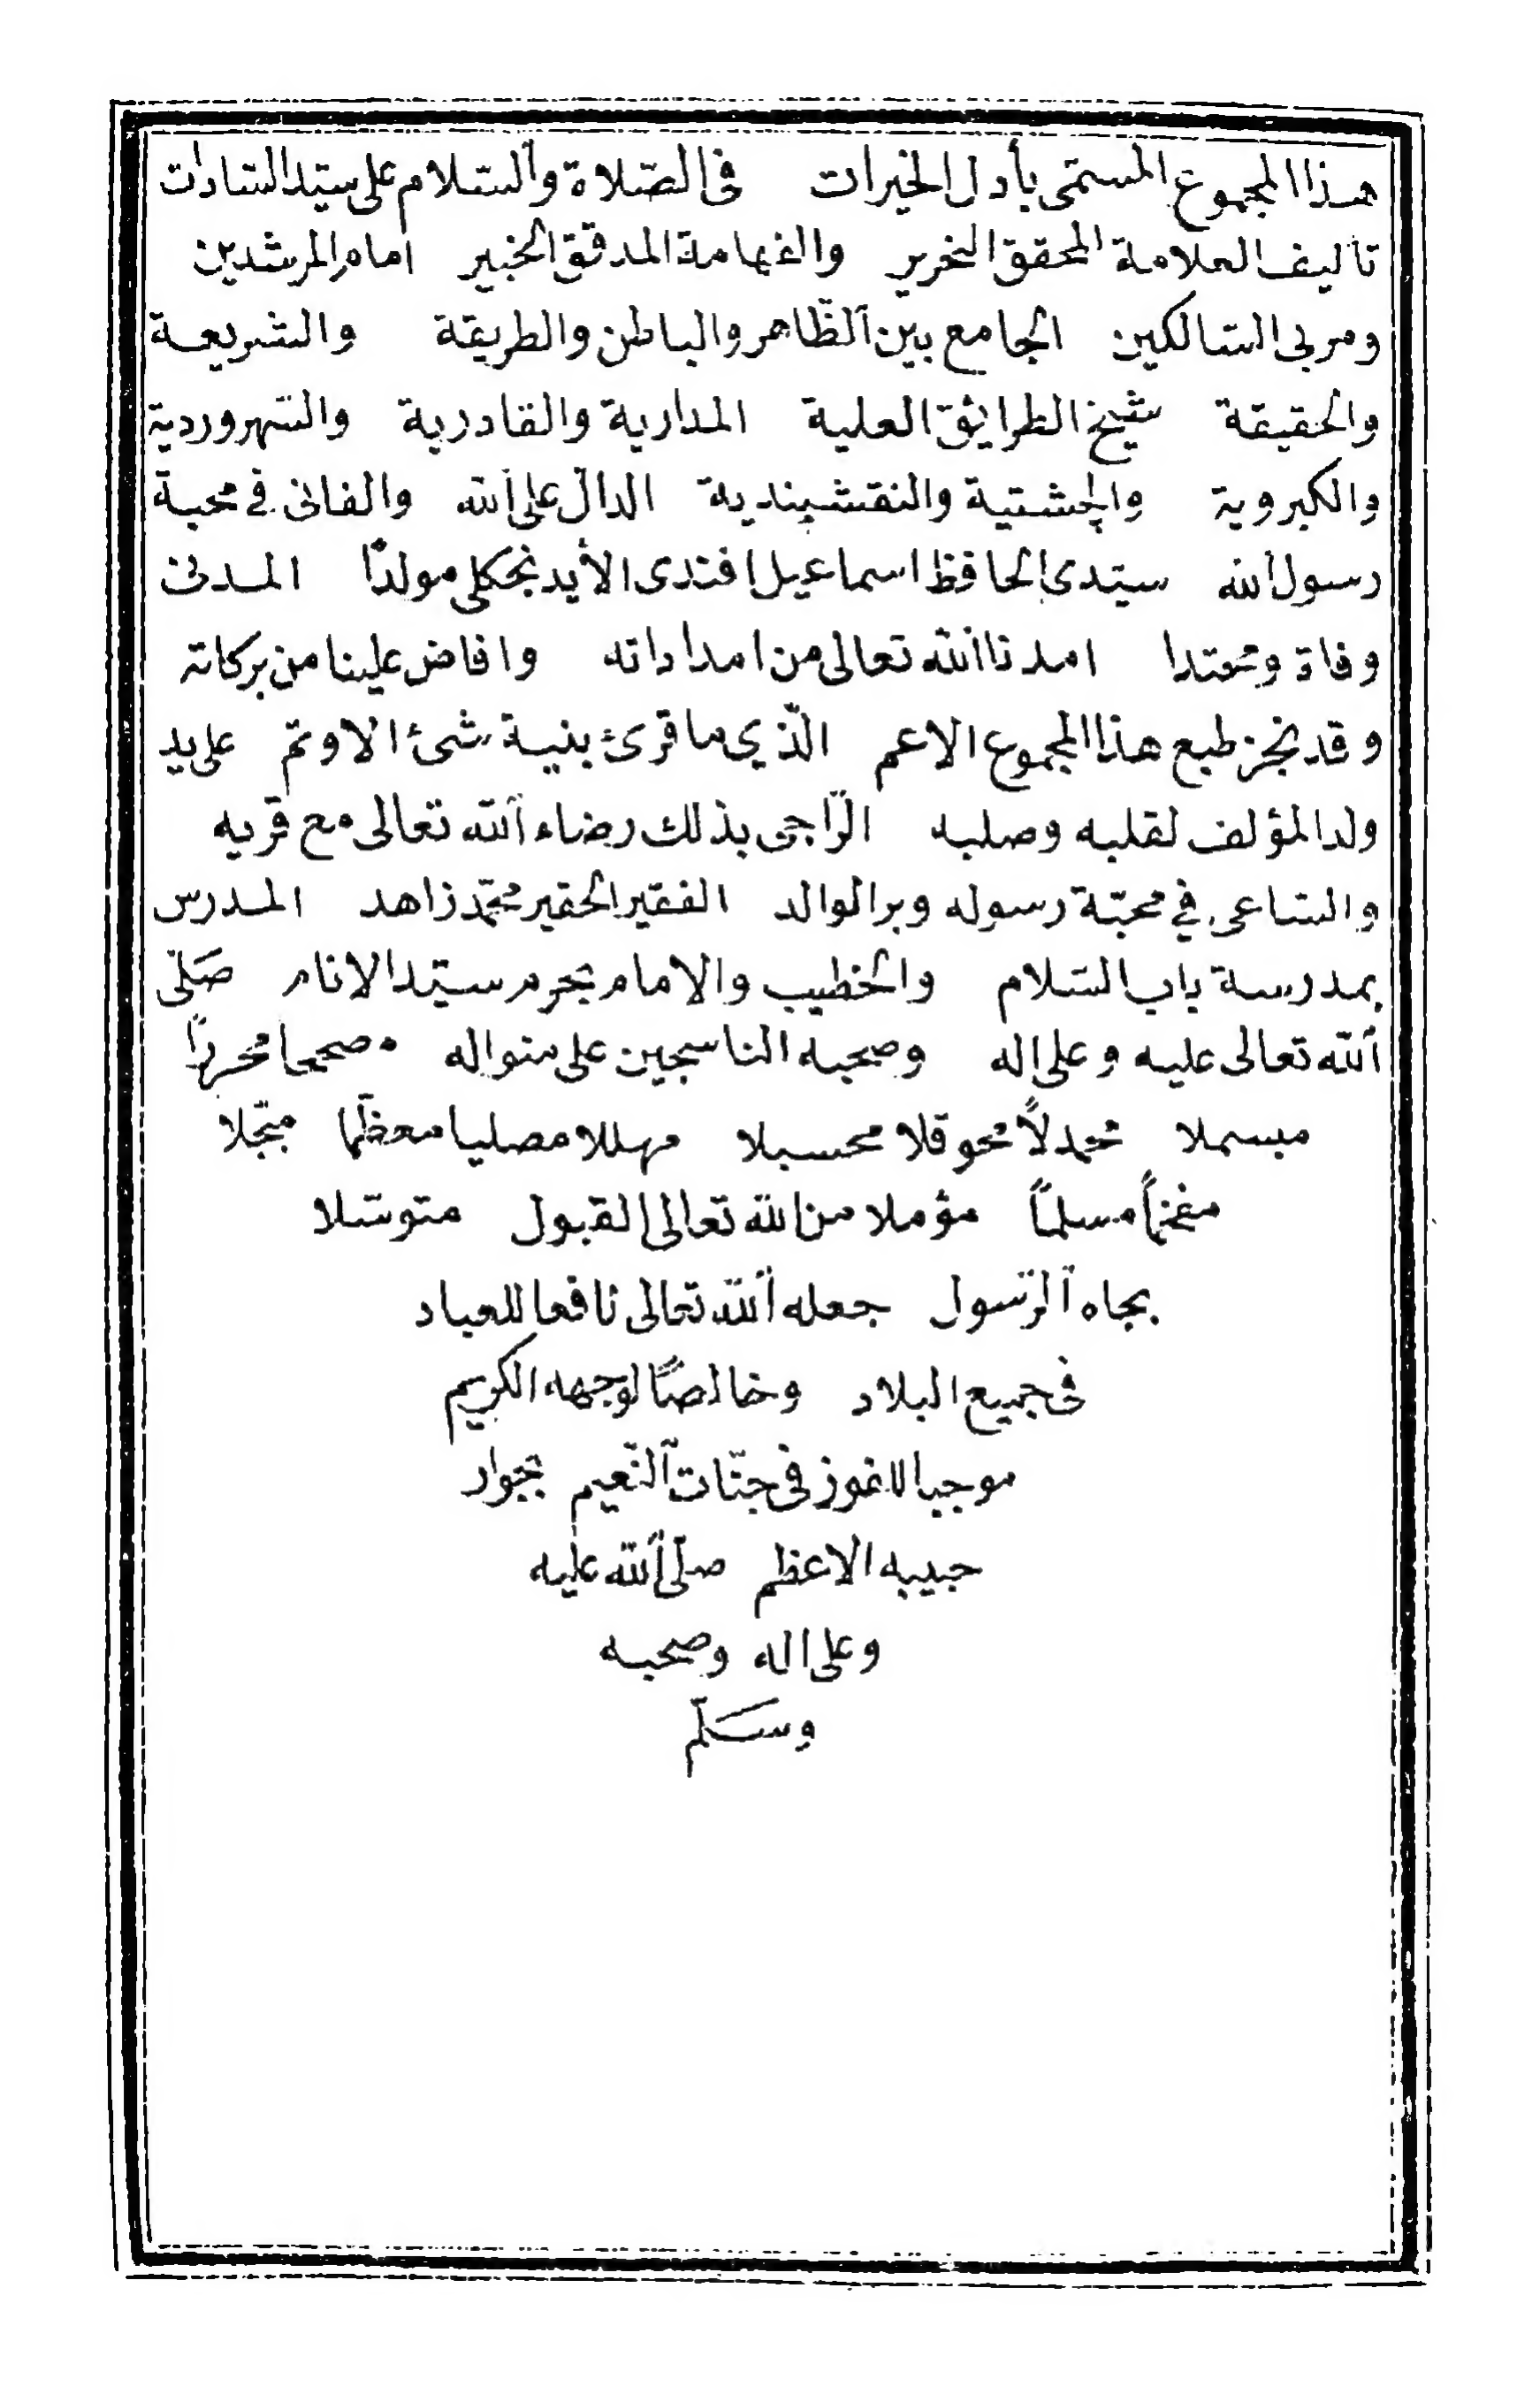 هذا المجموع المسمّى بأدل الخيرات فى الصّلاة والسّلام على سيّد السّادات
تأليف العلامة المحقق النحرير والفهامة المدقق الخبير امام المرشدين
ومربى السّالكين الجامع بين الظّاهر والباطن والطريقة والشريعة
والحقيقة شيخ الطرائق العلية المدارية والقادرية والسّهروردية
والكبروية والچشتية والنقشبندية الدال على الله والفانى فى محبة
رسول الله سيّدى الحافظ اسماعيل افندى الأيدنجكلى مولدًا المدنى
وفاة ومحتدا امدنا الله تعالى من امداداته وافاض علينا من بركاته
وقد نجز طبع هذا المجموع الاعم الّذي ما قرئ بنية شئ الا وتم على يد
ولد المؤلف لقلبه وصلبه الرّاجى بذلك رضاء الله تعالى مع قربه
والسّاعى في محبّة رسوله وبر الوالد الفقير الحقير محمّد زاهد المدرس
بمدرسة باب السّلام والخطيب والامام بحرم سيّد الانام صَلّى
الله تعالى عليه وعلى اله وصحبه الناسجين على منواله مصححا محررًا
مبسملا محمدلاً محوقلا محسبلا مهللا مصليا معظّما مبجّلا
مفخماً مسلماً مؤملا من الله تعالى القبول متوسّلا
بجاه الرّسول جعله الله تعالى نافعا للعباد
فى جميع البلاد وخالصًا لوجهه الكريم
موجبا للفوز فى جنّات النّعيم بجوار
حبيبه الاعظم صلّى الله عليه
وعلى اله وصحبه
وسَلّم